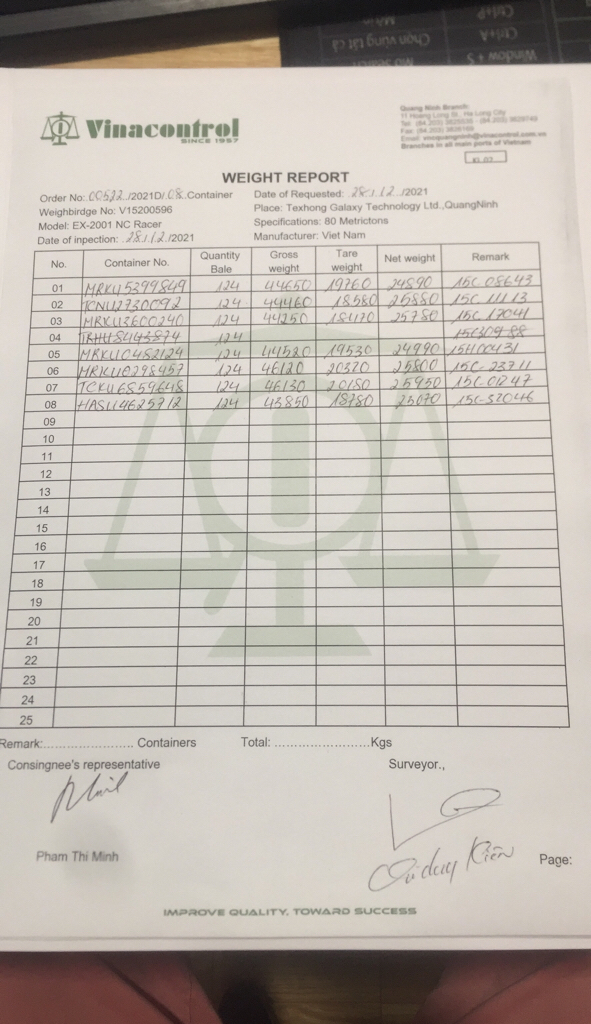 Ctrl+P
Ctrl+A
Chọn vùng tất cả
Window + S
Vinacontrol
SINCE 1957
Quang Ninh Branch:
11 Hoang Long St., Ha Long City
Branches in all main ports of Vietnam
WEIGHT REPORT
Order No: 00522 /2021D/ 08 Container
Date of Requested: 28/12/2021
Weighbirdge No: V15200596
Place: Texhong Galaxy Technology Ltd.,QuangNinh
Model: EX-2001 NC Racer
Specifications: 80 Metrictons
Date of inpection: 28/12/2021
Manufacturer: Viet Nam
No. Container No. Quantity Bale Gross weight Tare weight Net weight Remark
01 MRKU5399849 124 44650 19760 24890 15C 08643
02 TCNU2730092 124 44460 18580 25880 15C 11113
03 MRKU3600240 124 44250 18470 25780 15C 17041
04 TRHU8443874 124 15C30988
05 MRKU0482124 124 44520 19530 24990 15H00431
06 MRKU0298457 124 46120 20320 25800 15C-23711
07 TCKU6859648 124 46130 20180 25950 15C-01247
08 HASU4625712 124 43850 18780 25070 15C-32046
09
10
11
12
13
14
15
16
17
18
19
20
21
22
23
24
25
Remark:...................... Containers Total: .......................Kgs
Consingnee's representative Surveyor.,
Pham Thi Minh
Page:
IMPROVE QUALITY, TOWARD SUCCESS